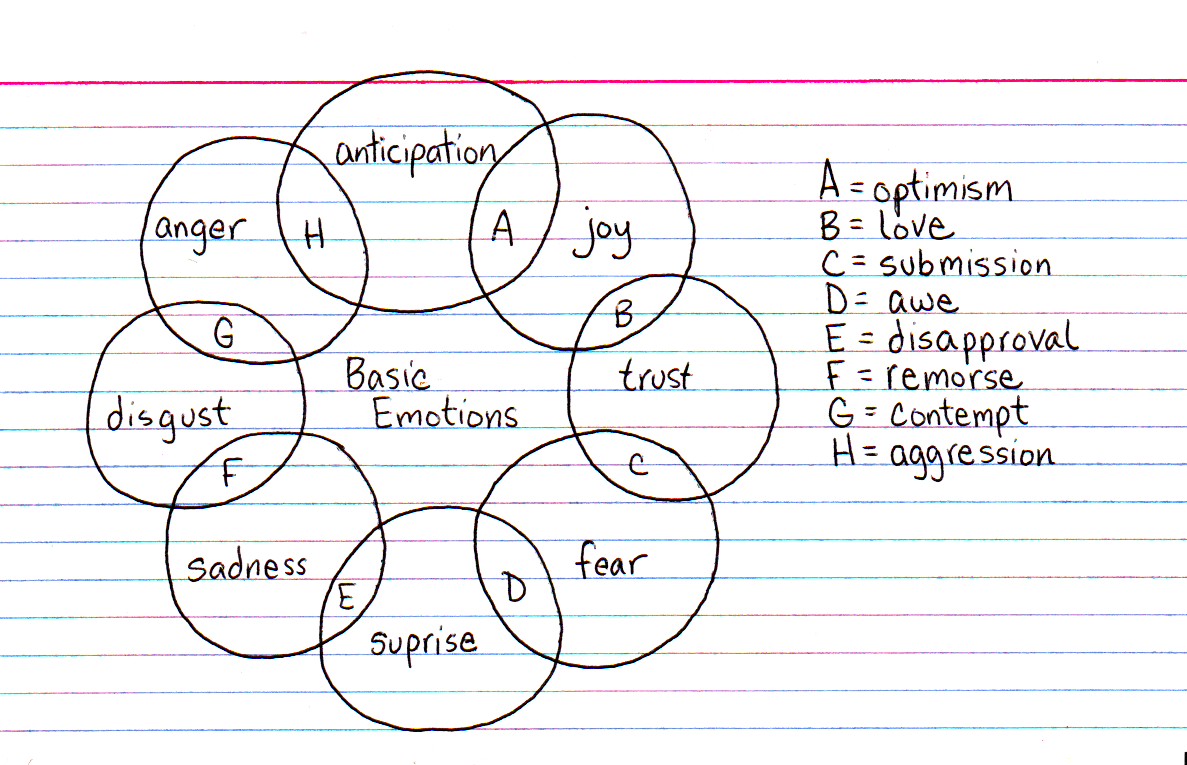 anticipation
anger
H
A
joy
G
B
Basic
Emotions
trust
disgust
F
C
sadness
E
D
fear
suprise
A = optimism
B = love
C = submission
D = awe
E = disapproval
F = remorse
G = contempt
H = aggression